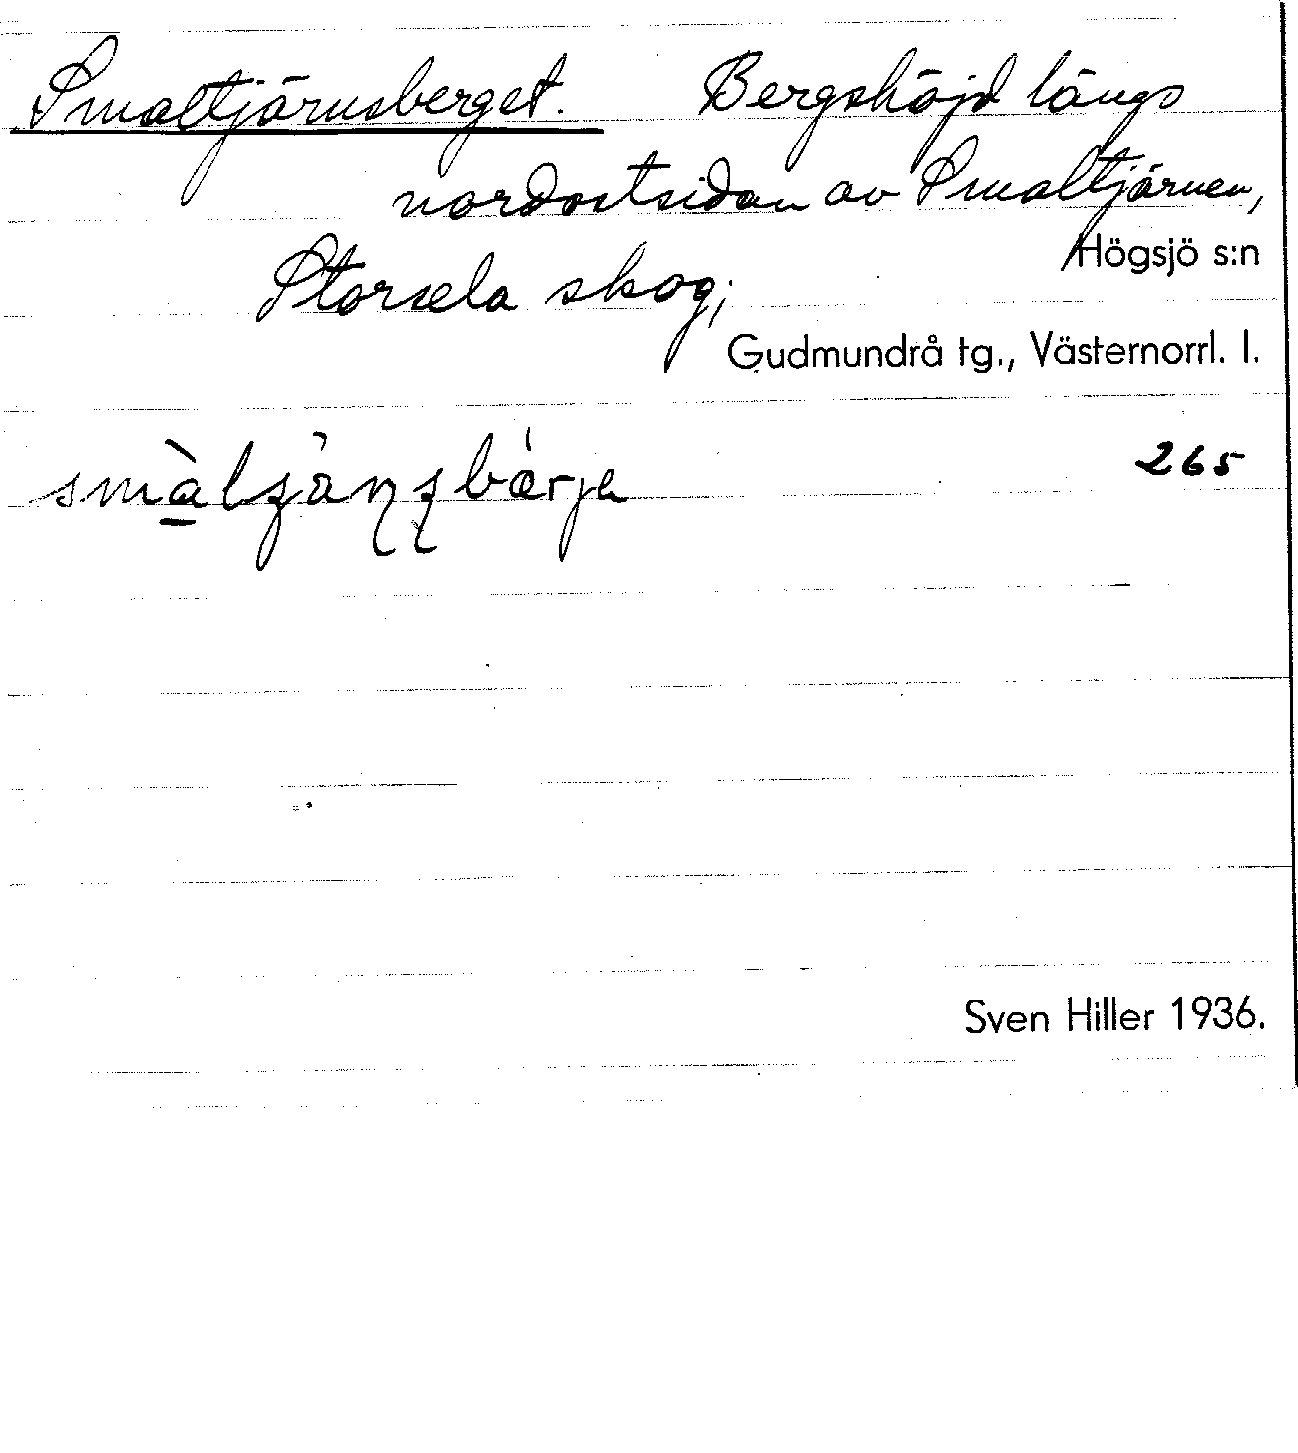 Smaltjärnsberget. Bergshöjd längs
nordostsidan av Smaltjärnen,
Högsjö s:n
Storsela skog;
Gudmundrå tg., Västernorrl. l.
265
Sven Hiller 1936.